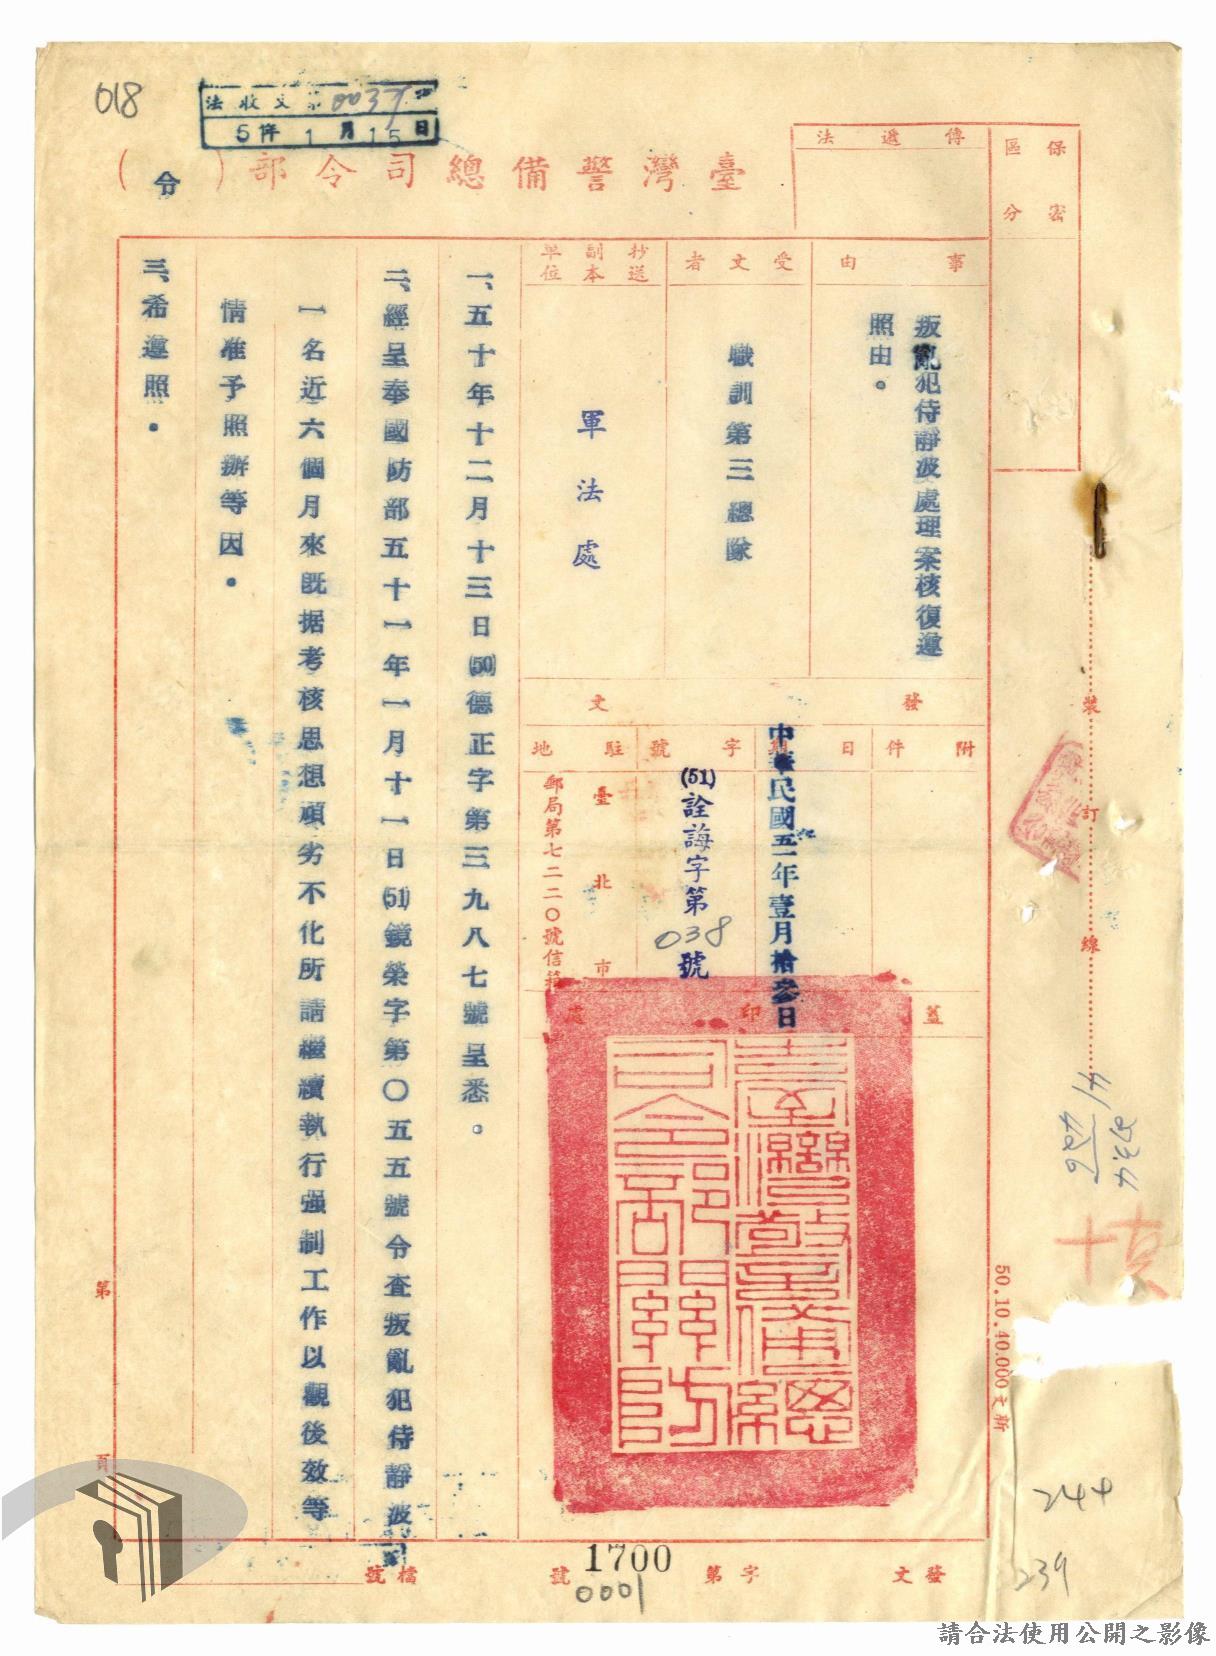 018
法收文第
51年1月15日
臺灣警備總司令部（令）
保密
區分
傳遞法
事由
叛亂犯侍靜波處理案核復遵
照由。
受文者
職訓第三總隊
抄送
副本
單位
軍法處
發文
附件
日期
中華民國五一年壹月拾參日
字號
(51)詮誨字第038號
駐地
臺北市
郵局第七二二〇號信箱
蓋印處
臺灣警備總
司令部關防
一、五十年十二月十三日(50)德正字第三九八七號呈悉。
二、經呈奉國防部五十一年一月十一日(51)鏡榮字第〇五五號令查叛亂犯侍靜波
一名近六個月來既据考核思想頑劣不化所請繼續執行强制工作以觀後效等
情准予照辦等因。
三、希遵照。
裝訂線
50.10.40.000
第頁
發文字第1700號
0001
檔號
244
239
請合法使用公開之影像